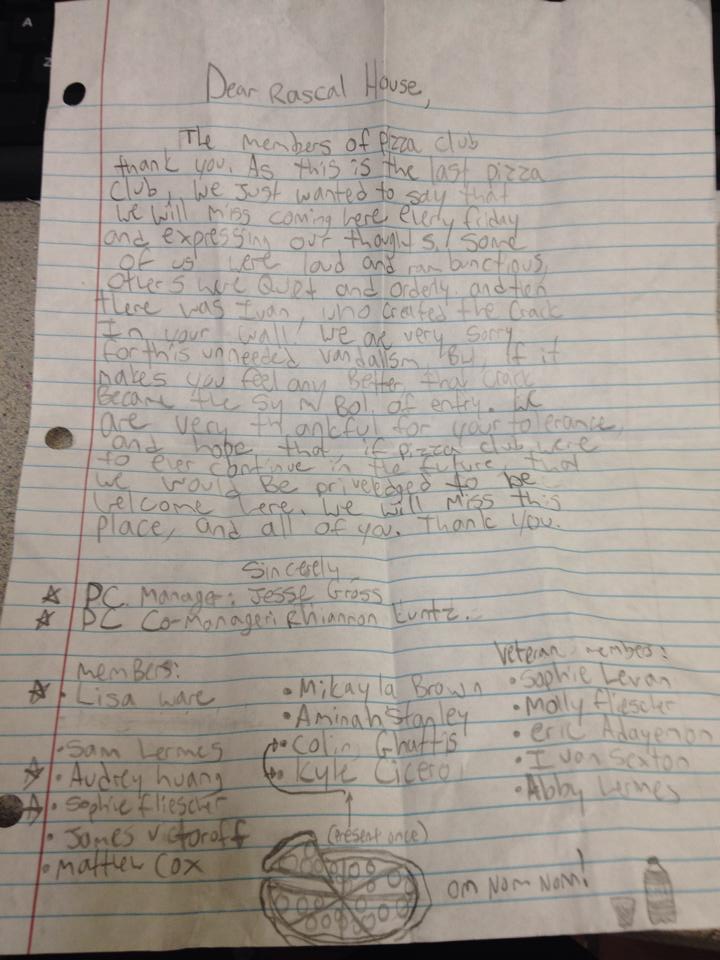 Dear Rascal House,
The members of pizza club
thank you. As this is the last pizza
club, we just wanted to say that
we will miss coming here every friday
and expressing our thoughts! Some
of us were loud and rambunctious,
others were quiet and orderly. and then
there was Ivan, who created the crack
In your wall! We are very sorry
for this unneeded vandalism But, if it
makes you feel any Better, that crack
Became the symBol of entry. We
are very thankful for your tolerance,
and hope that, if pizza club were
to ever continue in the future, that
we would Be priveledged to be
welcome here. We will miss this
place, and all of you. Thank you.
Sincerely
☆ PC Manager: Jesse Gross
☆ PC Co-Manager: Rhiannon Kuntz.
members:
☆ • Lisa Ware
• Sam Lermes
☆ • Audrey huang
☆ • Sophie fliescher
• James Victoroff
• Matthew Cox
• Mikayla Brown
• Aminah Stanley
• Colin Ghaffis
• Kyle Cicero
(present once)
Veteran members:
• Sophie Levan
• Molly fliescher
• eric Adayenon
• Ivan Sexton
• Abby Lermes
om Nom Nom!
A